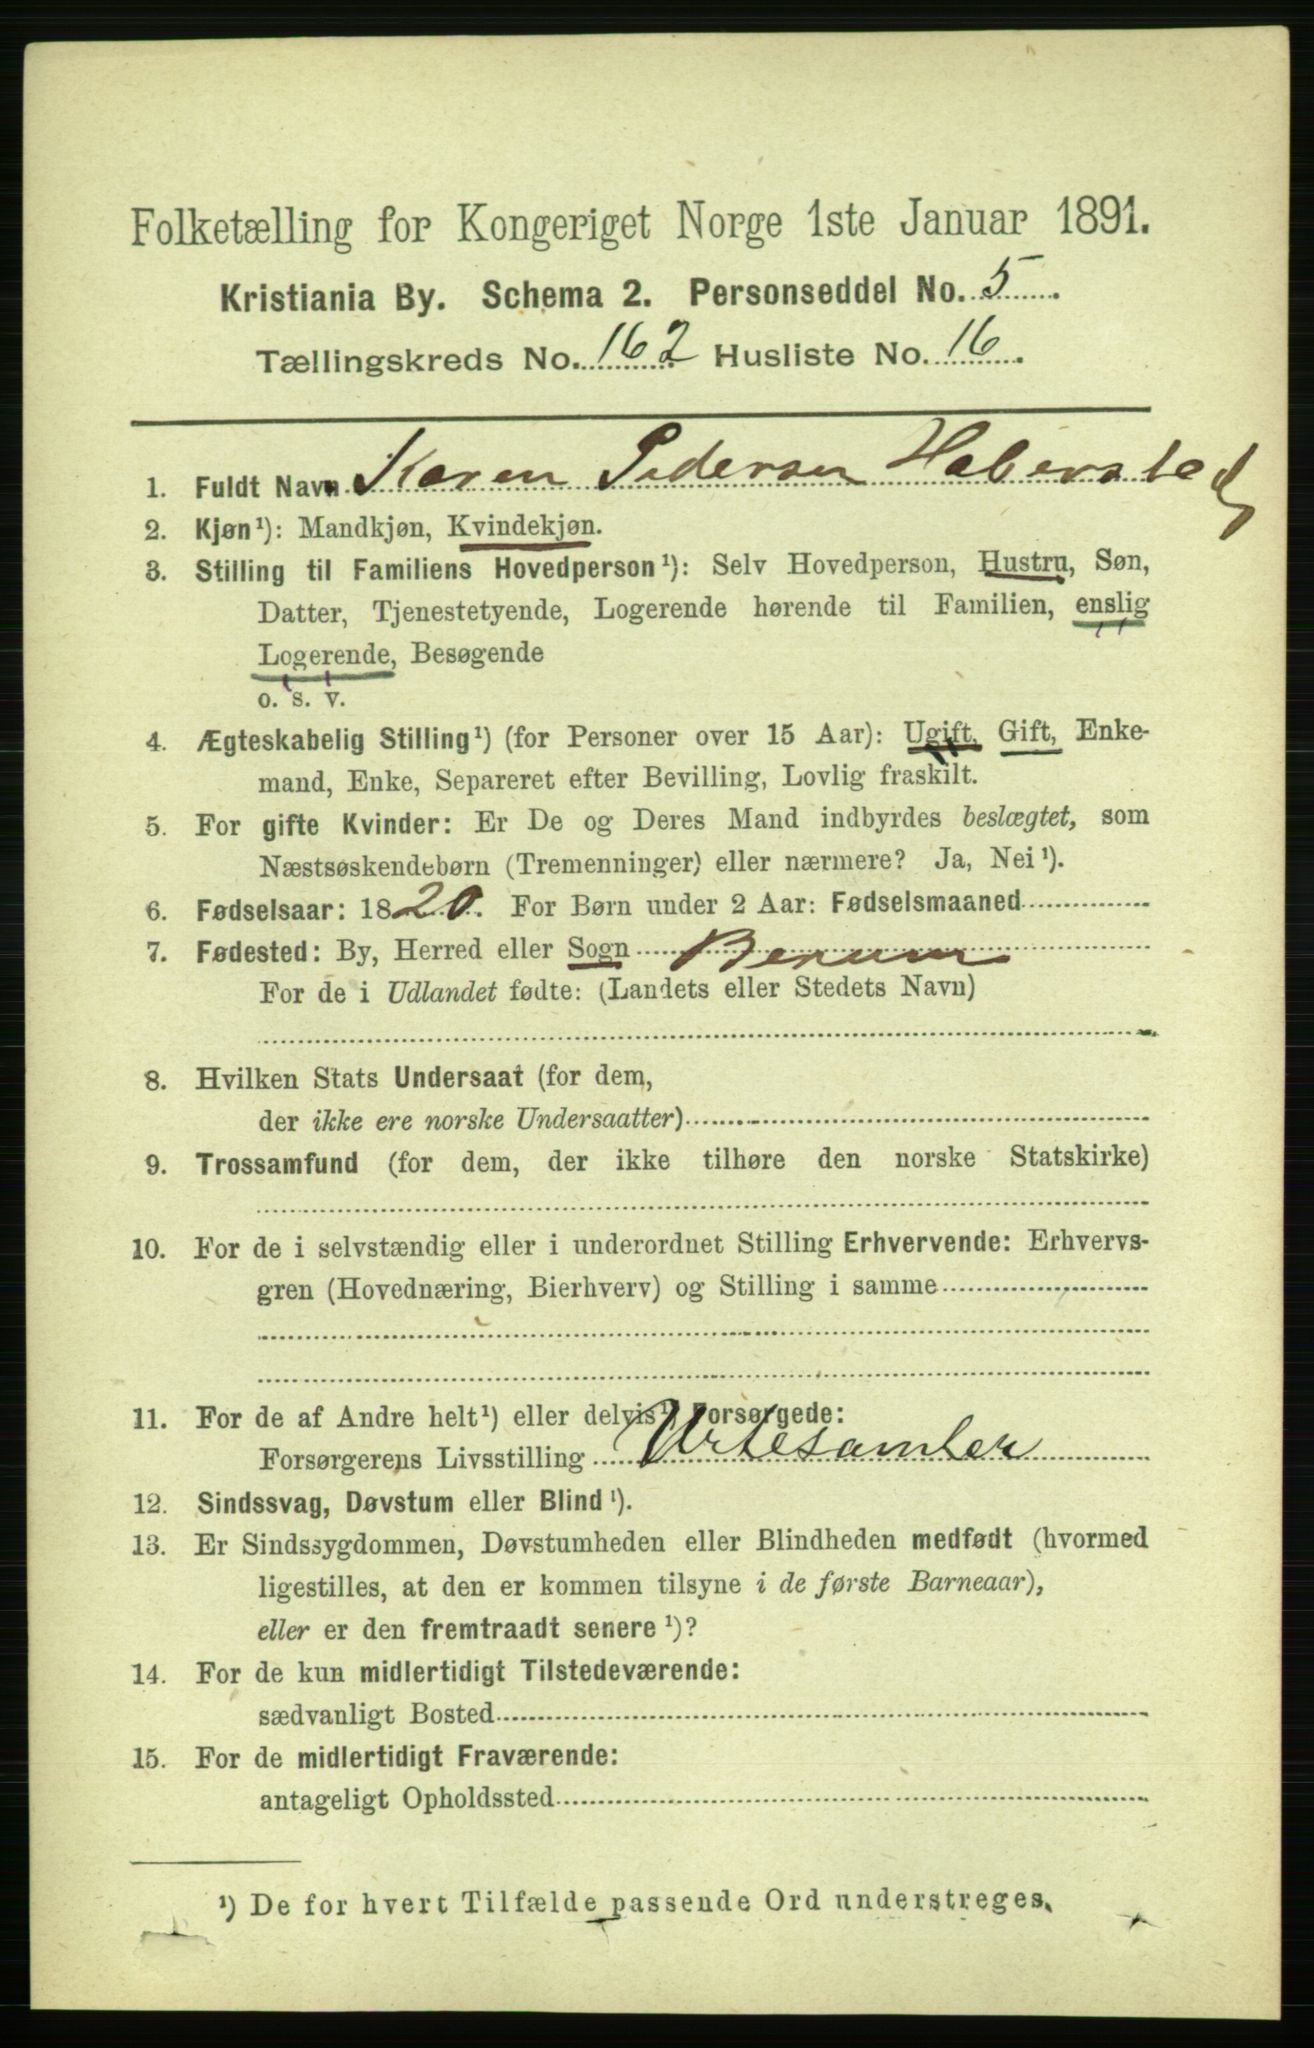 Folketælling for Kongeriget Norge 1ste Januar 1891.
Kristiania By. Schema 2. Personseddel No. 5.
Tællingskreds No. 162 Husliste No. 16.
1. Fuldt Navn Karen Pedersen Haberstad
2. Kjøn¹): Mandkjøn, Kvindekjøn.
3. Stilling til Familiens Hovedperson¹): Selv Hovedperson, Hustru, Søn,
Datter, Tjenestetyende, Logerende hørende til Familien, enslig
Logerende, Besøgende
o. s. v.
4. Ægteskabelig Stilling¹) (for Personer over 15 Aar): Ugift, Gift, Enke-
mand, Enke, Separeret efter Bevilling, Lovlig fraskilt.
5. For gifte Kvinder: Er De og Deres Mand indbyrdes beslægtet, som
Næstsøskendebørn (Tremenninger) eller nærmere? Ja, Nei¹).
6. Fødselsaar: 1820. For Børn under 2 Aar: Fødselsmaaned
7. Fødested: By, Herred eller Sogn Berum
For de i Udlandet fødte: (Landets eller Stedets Navn)
8. Hvilken Stats Undersaat (for dem,
der ikke ere norske Undersaatter)
9. Trossamfund (for dem, der ikke tilhøre den norske Statskirke)
10. For de i selvstændig eller i underordnet Stilling Erhvervende: Erhvervs-
gren (Hovednæring, Bierhverv) og Stilling i samme
11. For de af Andre helt¹) eller delvis¹) Forsørgede:
Forsørgerens Livsstilling Urtesamler
12. Sindssvag, Døvstum eller Blind¹).
13. Er Sindssygdommen, Døvstumheden eller Blindheden medfødt (hvormed
ligestilles, at den er kommen tilsyne i de første Barneaar),
eller er den fremtraadt senere¹)?
14. For de kun midlertidigt Tilstedeværende:
sædvanligt Bosted
15. For de midlertidigt Fraværende:
antageligt Opholdssted
¹) De for hvert Tilfælde passende Ord understreges.